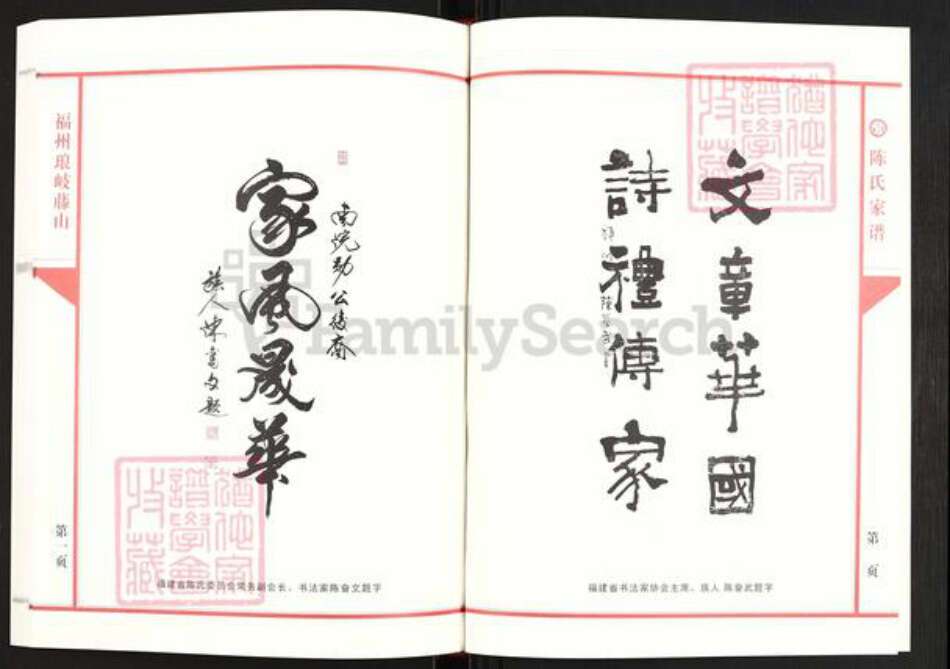 陈氏家谱
文章華國
詩禮傳家
福建省书法家协会主席、族人 陈奋武题字
福州琅岐藤山
家風晟華
族人陳奮文題
第一页
福建省陈氏委员会常务副会长、书法家陈奋文题字
FamilySearch